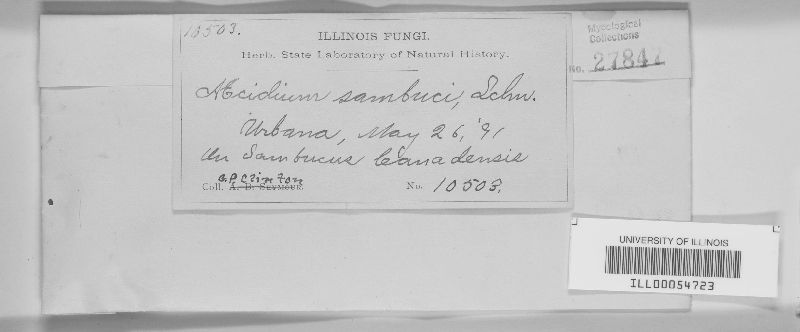 10503.
ILLINOIS FUNGI.
Herb. State Laboratory of Natural History.
Mycological
Collections
No. 27847
Æcidium sambuci, Schw.
Urbana, May 26, '91
On Sambucus Canadensis
G.P. Clinton
Coll. A. B. Seymour.
No. 10503.
UNIVERSITY OF ILLINOIS
ILL00054723